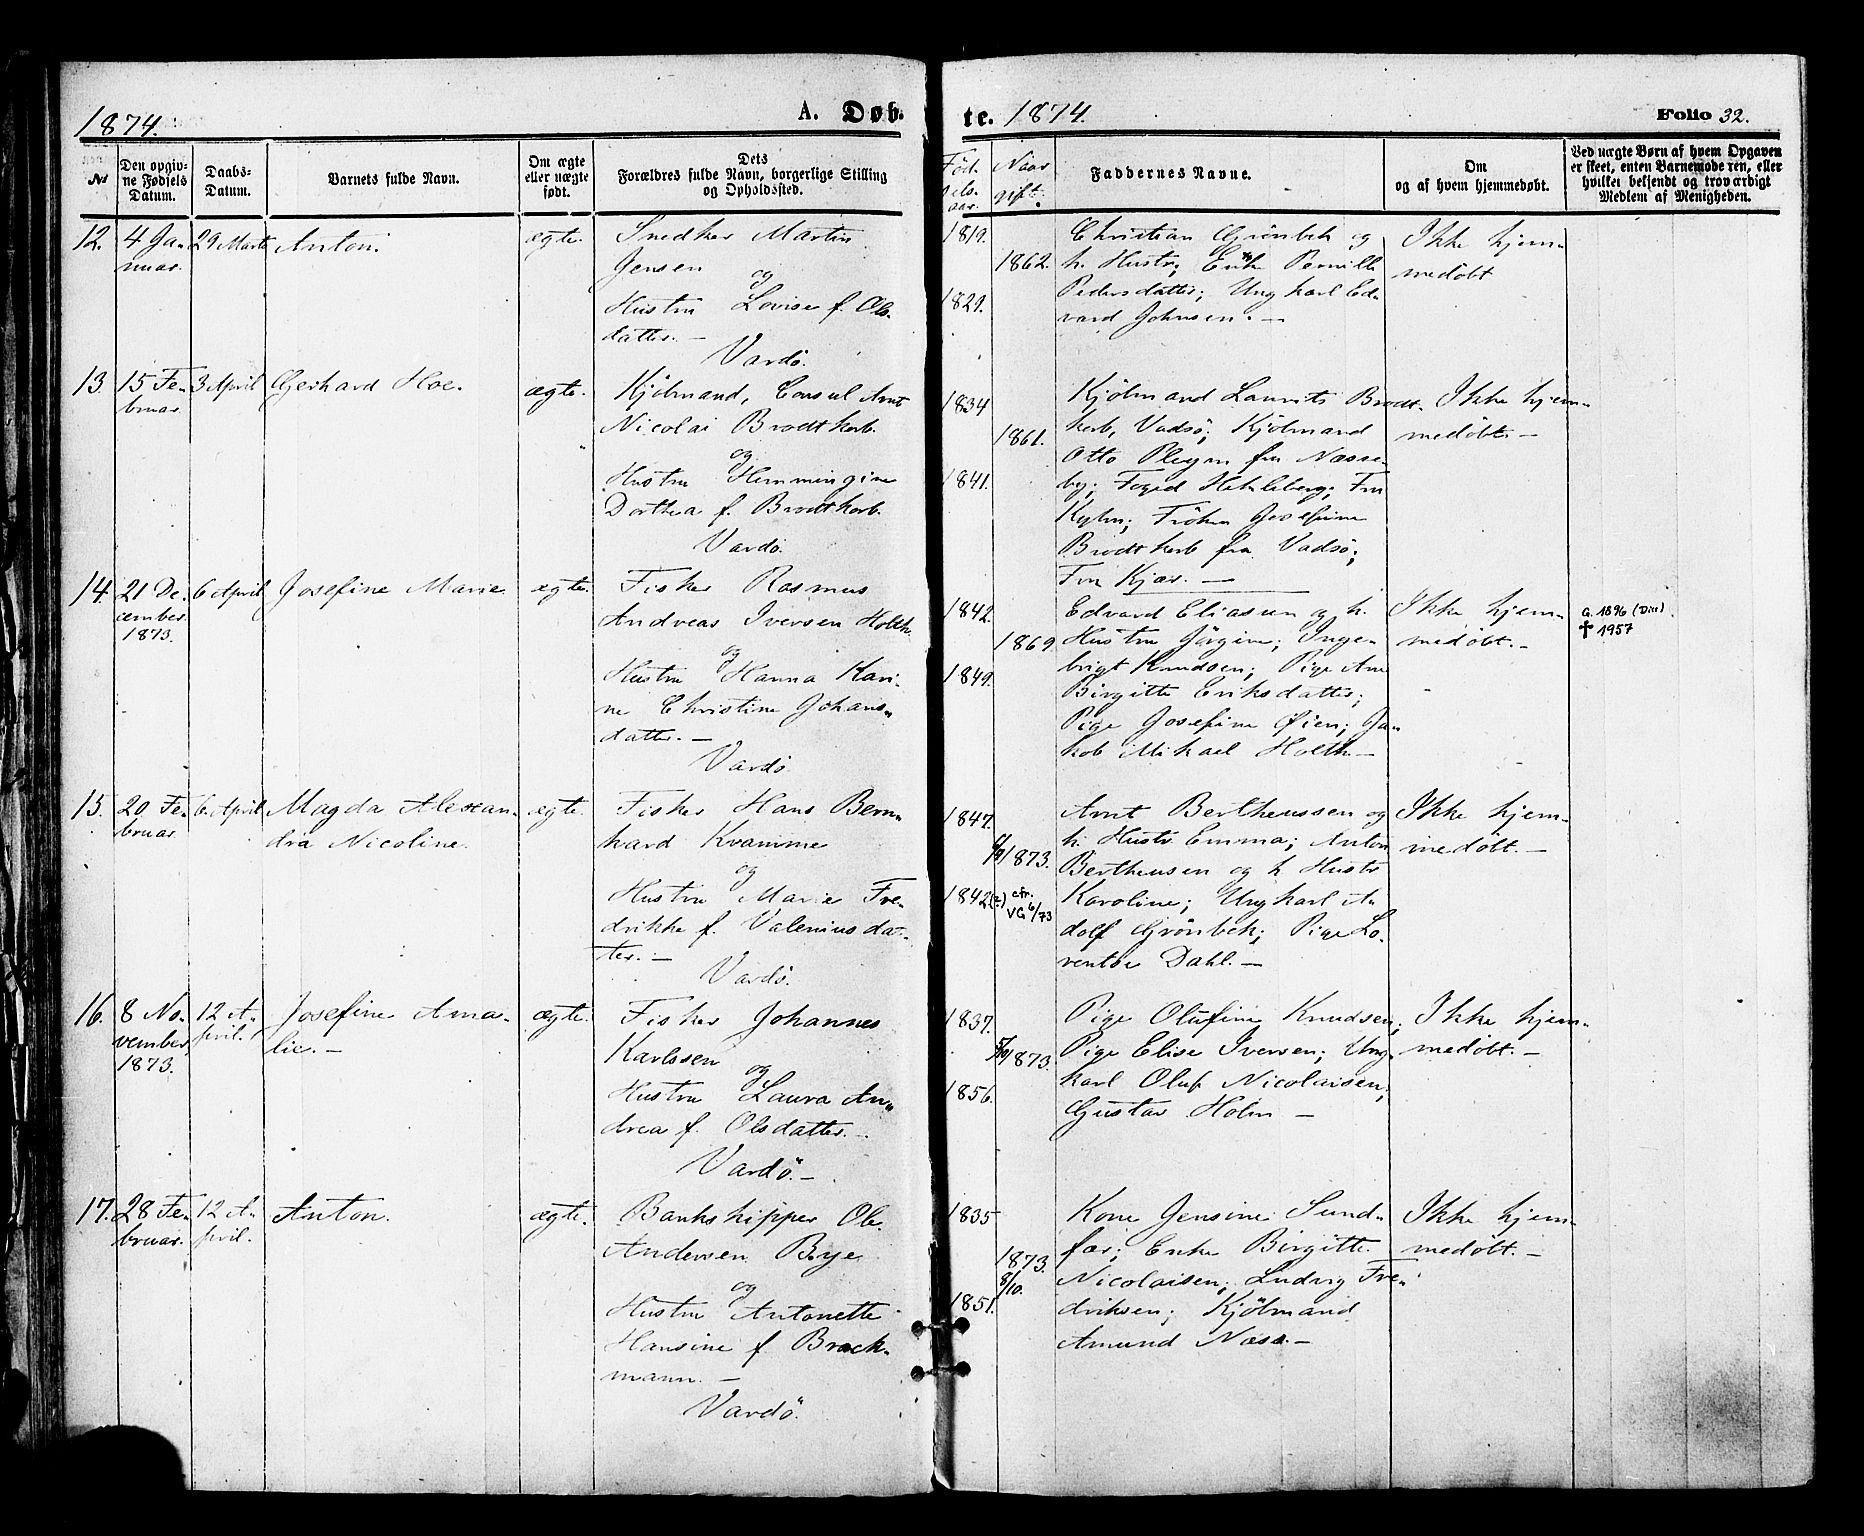 1874.
A. Døb-
te. 1874.
Folio 32.
No
Den opgiv-
ne Fødsels
Datum.
Daabs-
Datum.
Barnets fulde Navn.
Om ægte
eller uægte
født.
Dets
Forældres fulde Navn, borgerlige Stilling
og Opholdssted.
Föd-
sels-
aar.
Naar
gift.
Faddernes Navne.
Om
og af hvem hjemmedøbt.
Ved uægte Børn af hvem Opgaven
er skeet, enten Barnemoderen, eller
hvilket bekjendt og troværdigt
Medlem af Menigheden.
12.
4 Ja-
nuar.
29 Marts
Anton.
ægte.
Snedker Martin
Jensen
og
Hustru Lovise f. Ols-
datter. —
Vardö.
1819.
1862.
1829.
Christian Grönbek og
h. Hustr; Enke Pernille
Pedersdatter; Ungkarl Ed-
vard Johnsen. —
Ikke hjem-
medöbt
13.
15 Fe-
bruar.
3 April
Gerhard Hoe.
ægte.
Kjöbmand, Consul Arnt
Nicolai Brodtkorb.
og
Hustru Hemmingine
Dorthea f. Brodtkorb.
Vardö.
1834
1861.
1841.
Kjöbmand Laurits Brodt-
korb, Vadsö; Kjöbmand
Otto Pleym fra Nesse-
by; Foged ; Fru
; Fröken Josefine
Brodtkorb fra Vadsö;
Fru Kjær. —
Ikke hjem-
medöbt. —
14.
21 De-
cember
1873.
6 April
Josefine Marie
ægte.
Fisker Rasmus
Andreas Iversen Holth
og
Hustru Hanna Kari-
ne Christine Johans-
datter. —
Vardö
1842.
1869
1849.
Edvard Eliasen og h.
Hustru Jörgine; Inge-
brigt Knudsen; Pige Ane
Birgitte Eriksdatter;
Pige Josefine Øien; Ja-
kob Mikael Holth —
Ikke hjem-
medöbt. —
G. 1896 (Din)
✝ 1957
15.
20 Fe-
bruar.
6. April
Magda Alexan-
dra Nicoline.
ægte.
Fisker Hans Bern-
hard Kvamme
og
Hustru Marie Fre-
drikke f. Valeniusdat-
ter. —
Vardö.
1847.
1873.
1842(?)
cfr.
VG 6/73
Arnt Bertheussen og
h. Hustr Emma; Anton
Bertheusen og h Hustr
Karoline; Ungkarl A-
dolf Grönbek; Pige Lo-
rentse Dahl. —
Ikke hjem-
medöbt. —
16.
8 No-
vember
1873.
12 A-
pril.
Josefine Ama-
lie. —
ægte.
Fisker Johannes
Karlssen
og
Hustru Laura An-
drea f. Olsdatter. —
Vardö. —
1837.
1873.
1856.
Pige Olufine Knudsen;
Pige Elise Iversen; Ung-
karl Oluf Nicolaisen;
Gustav Holm —
Ikke hjem-
medöbt. —
17.
28 Fe-
bruar.
12 A-
pril.
Anton.
ægte.
Bankskipper Ole
Andersen Bye
og
Hustru Antonette
Hansine f. Brock-
mann. —
Vardö.
1835
1873.
8/10.
1851.
Kone Jensine Sund-
før; Enke Birgitte
Nicolaisen; Ludvig Fre-
driksen; Kjöbmand
Amund Næss. —
Ikke hjem-
medöbt. —